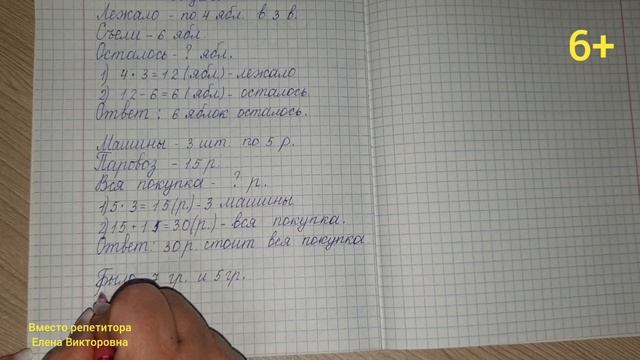 Лежало - по 4 ябл. в 3 в.
Съели - 6 ябл.
Осталось - ? ябл.
1) 4 · 3 = 12 (ябл) - лежало
2) 12 - 6 = 6 (ябл) - осталось.
Ответ : 6 яблок осталось.
Машины - 3 шт. по 5 р.
Паровоз - 15 р.
Вся покупка - ? р.
1) 5 · 3 = 15 (р.) - 3 машины
2) 15 + 15 = 30 (р.) - вся покупка.
Ответ: 30 р. стоит вся покупка
Было 7 гр. и 5 гр.
6+
Вместо репетитора
Елена Викторовна